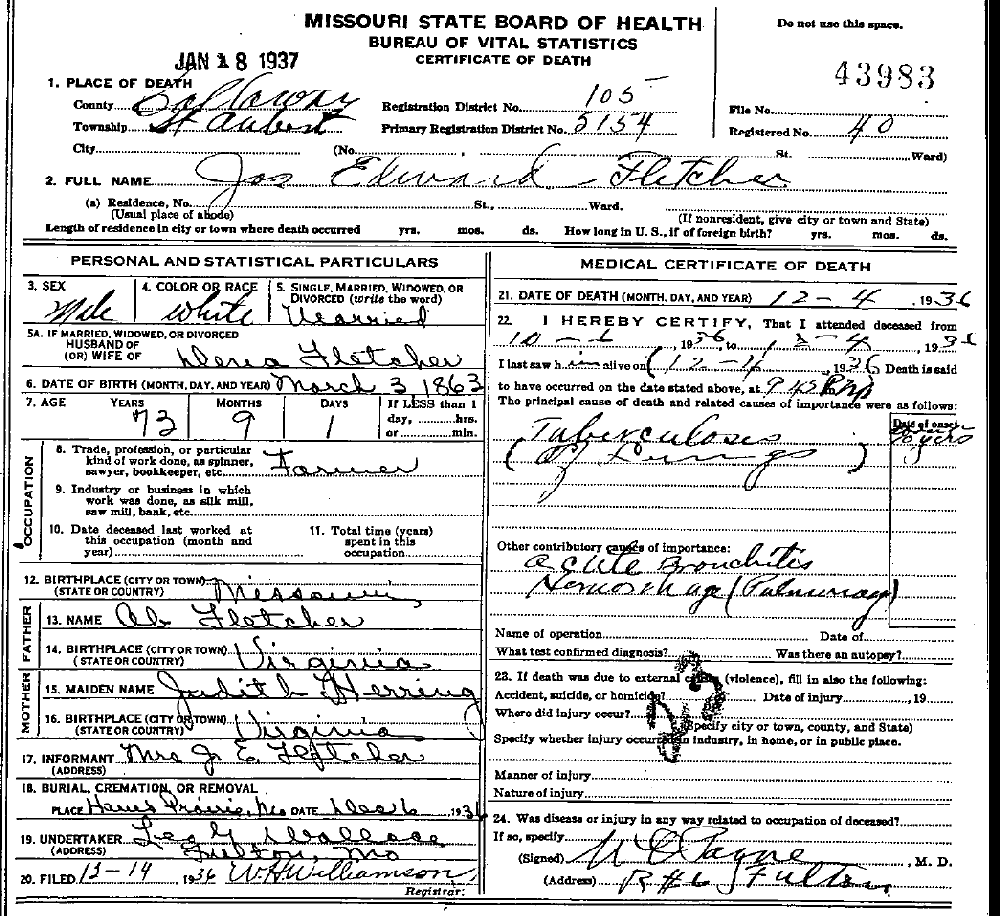 MISSOURI STATE BOARD OF HEALTH
BUREAU OF VITAL STATISTICS
CERTIFICATE OF DEATH
Do not use this space.
JAN 18 1937
43983
1. PLACE OF DEATH
County Callaway Registration District No. 105 File No.
Township St Aubert Primary Registration District No. 5154 Registered No. 40
City (No. , St. Ward)
2. FULL NAME Jos Edward Fletcher
(a) Residence, No. St., Ward.
(Usual place of abode) (If nonresident, give city or town and State)
Length of residence in city or town where death occurred yrs. mos. ds. How long in U. S., if of foreign birth? yrs. mos. ds.
PERSONAL AND STATISTICAL PARTICULARS
3. SEX Male
4. COLOR OR RACE White
5. SINGLE, MARRIED, WIDOWED, OR DIVORCED (write the word) Married
5A. IF MARRIED, WIDOWED, OR DIVORCED
HUSBAND OF
(OR) WIFE OF Fletcher
6. DATE OF BIRTH (MONTH, DAY, AND YEAR) March 3 1863
7. AGE YEARS 73 MONTHS 9 DAYS 1 If LESS than 1 day, hrs. or min.
OCCUPATION
8. Trade, profession, or particular kind of work done, as spinner, sawyer, bookkeeper, etc. Farmer
9. Industry or business in which work was done, as silk mill, saw mill, bank, etc.
10. Date deceased last worked at this occupation (month and year)
11. Total time (years) spent in this occupation
12. BIRTHPLACE (CITY OR TOWN) Missouri
(STATE OR COUNTRY)
FATHER
13. NAME Ab Fletcher
14. BIRTHPLACE (CITY OR TOWN) Virginia
(STATE OR COUNTRY)
MOTHER
15. MAIDEN NAME Judith Herring
16. BIRTHPLACE (CITY OR TOWN) Virginia
(STATE OR COUNTRY)
17. INFORMANT Mrs J E Fletcher
(ADDRESS)
18. BURIAL, CREMATION, OR REMOVAL
PLACE Hams Prairie, Mo DATE Dec 6 1936
19. UNDERTAKER Wallace
(ADDRESS) Fulton, Mo
20. FILED 12-14 1936 W H Williamson
Registrar.
MEDICAL CERTIFICATE OF DEATH
21. DATE OF DEATH (MONTH, DAY, AND YEAR) 12-4, 1936
22. I HEREBY CERTIFY, That I attended deceased from
10-6, 1936, to 12-4, 1936
I last saw him alive on 1936 Death is said
to have occurred on the date stated above, at 9.45 Pm
The principal cause of death and related causes of importance were as follows:
Date of onset
Tuberculosis
(of Lungs) years
Other contributory causes of importance:
acute Bronchitis
Hemorrhage (Pulmonary)
Name of operation Date of
What test confirmed diagnosis? Was there an autopsy?
23. If death was due to external causes (violence), fill in also the following:
Accident, suicide, or homicide? Date of injury , 19
Where did injury occur?
(Specify city or town, county, and State)
Specify whether injury occurred in industry, in home, or in public place.
Manner of injury
Nature of injury
24. Was disease or injury in any way related to occupation of deceased?
If so, specify
(Signed) Payne, M. D.
(Address) R #6 Fulton